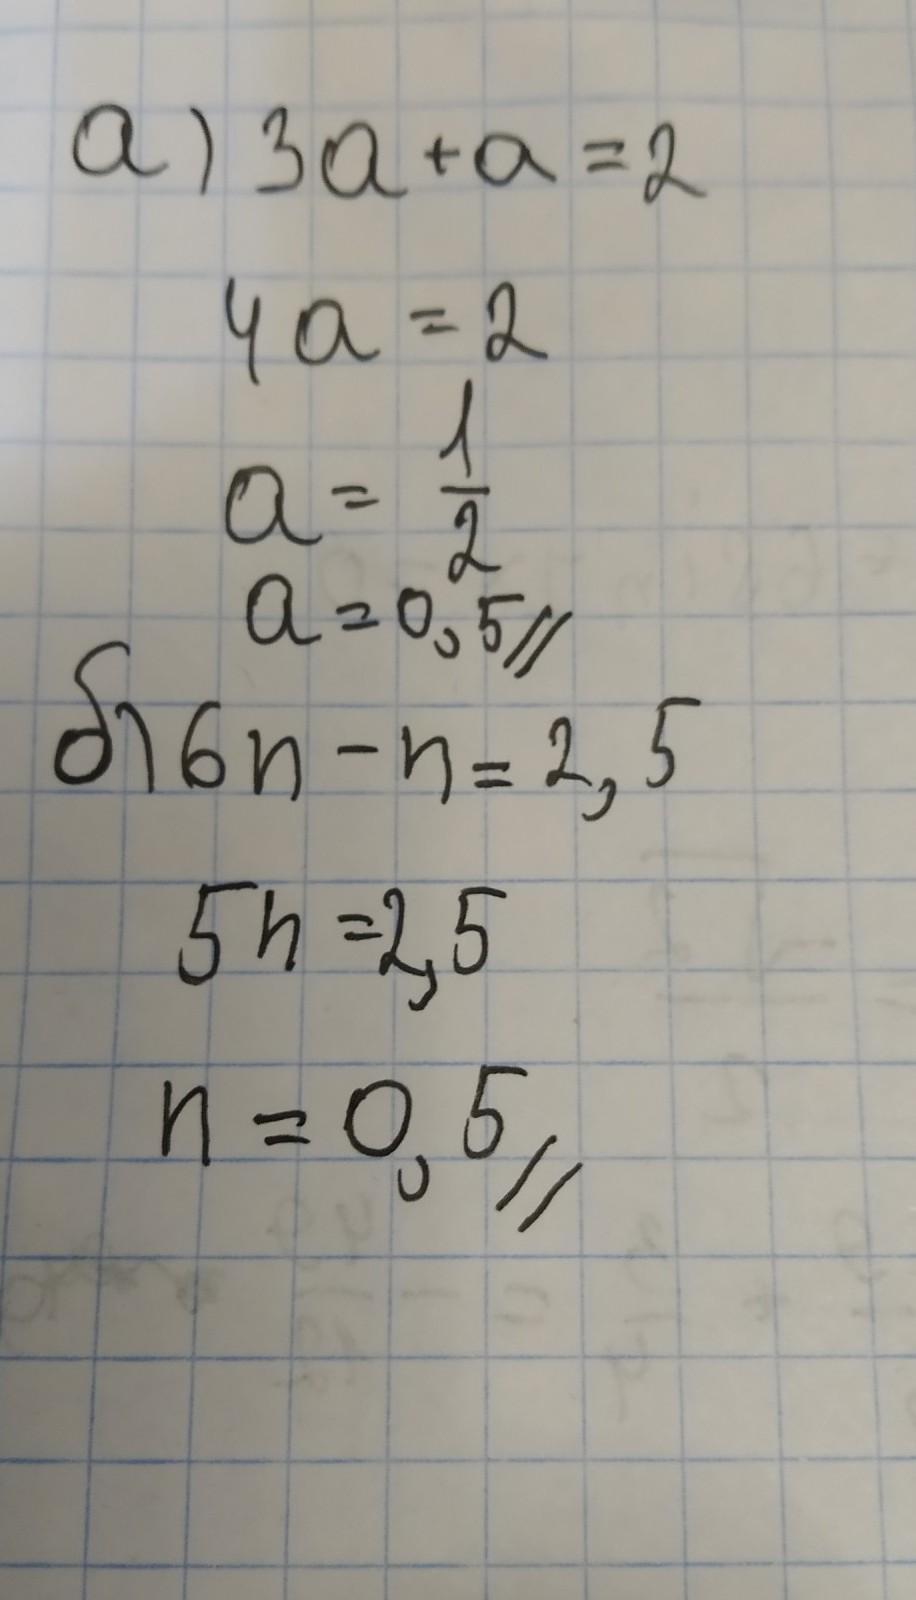 а) 3a + a = 2
4a = 2
a = 1/2
a = 0,5//
б) 6n - n = 2,5
5n = 2,5
n = 0,5//